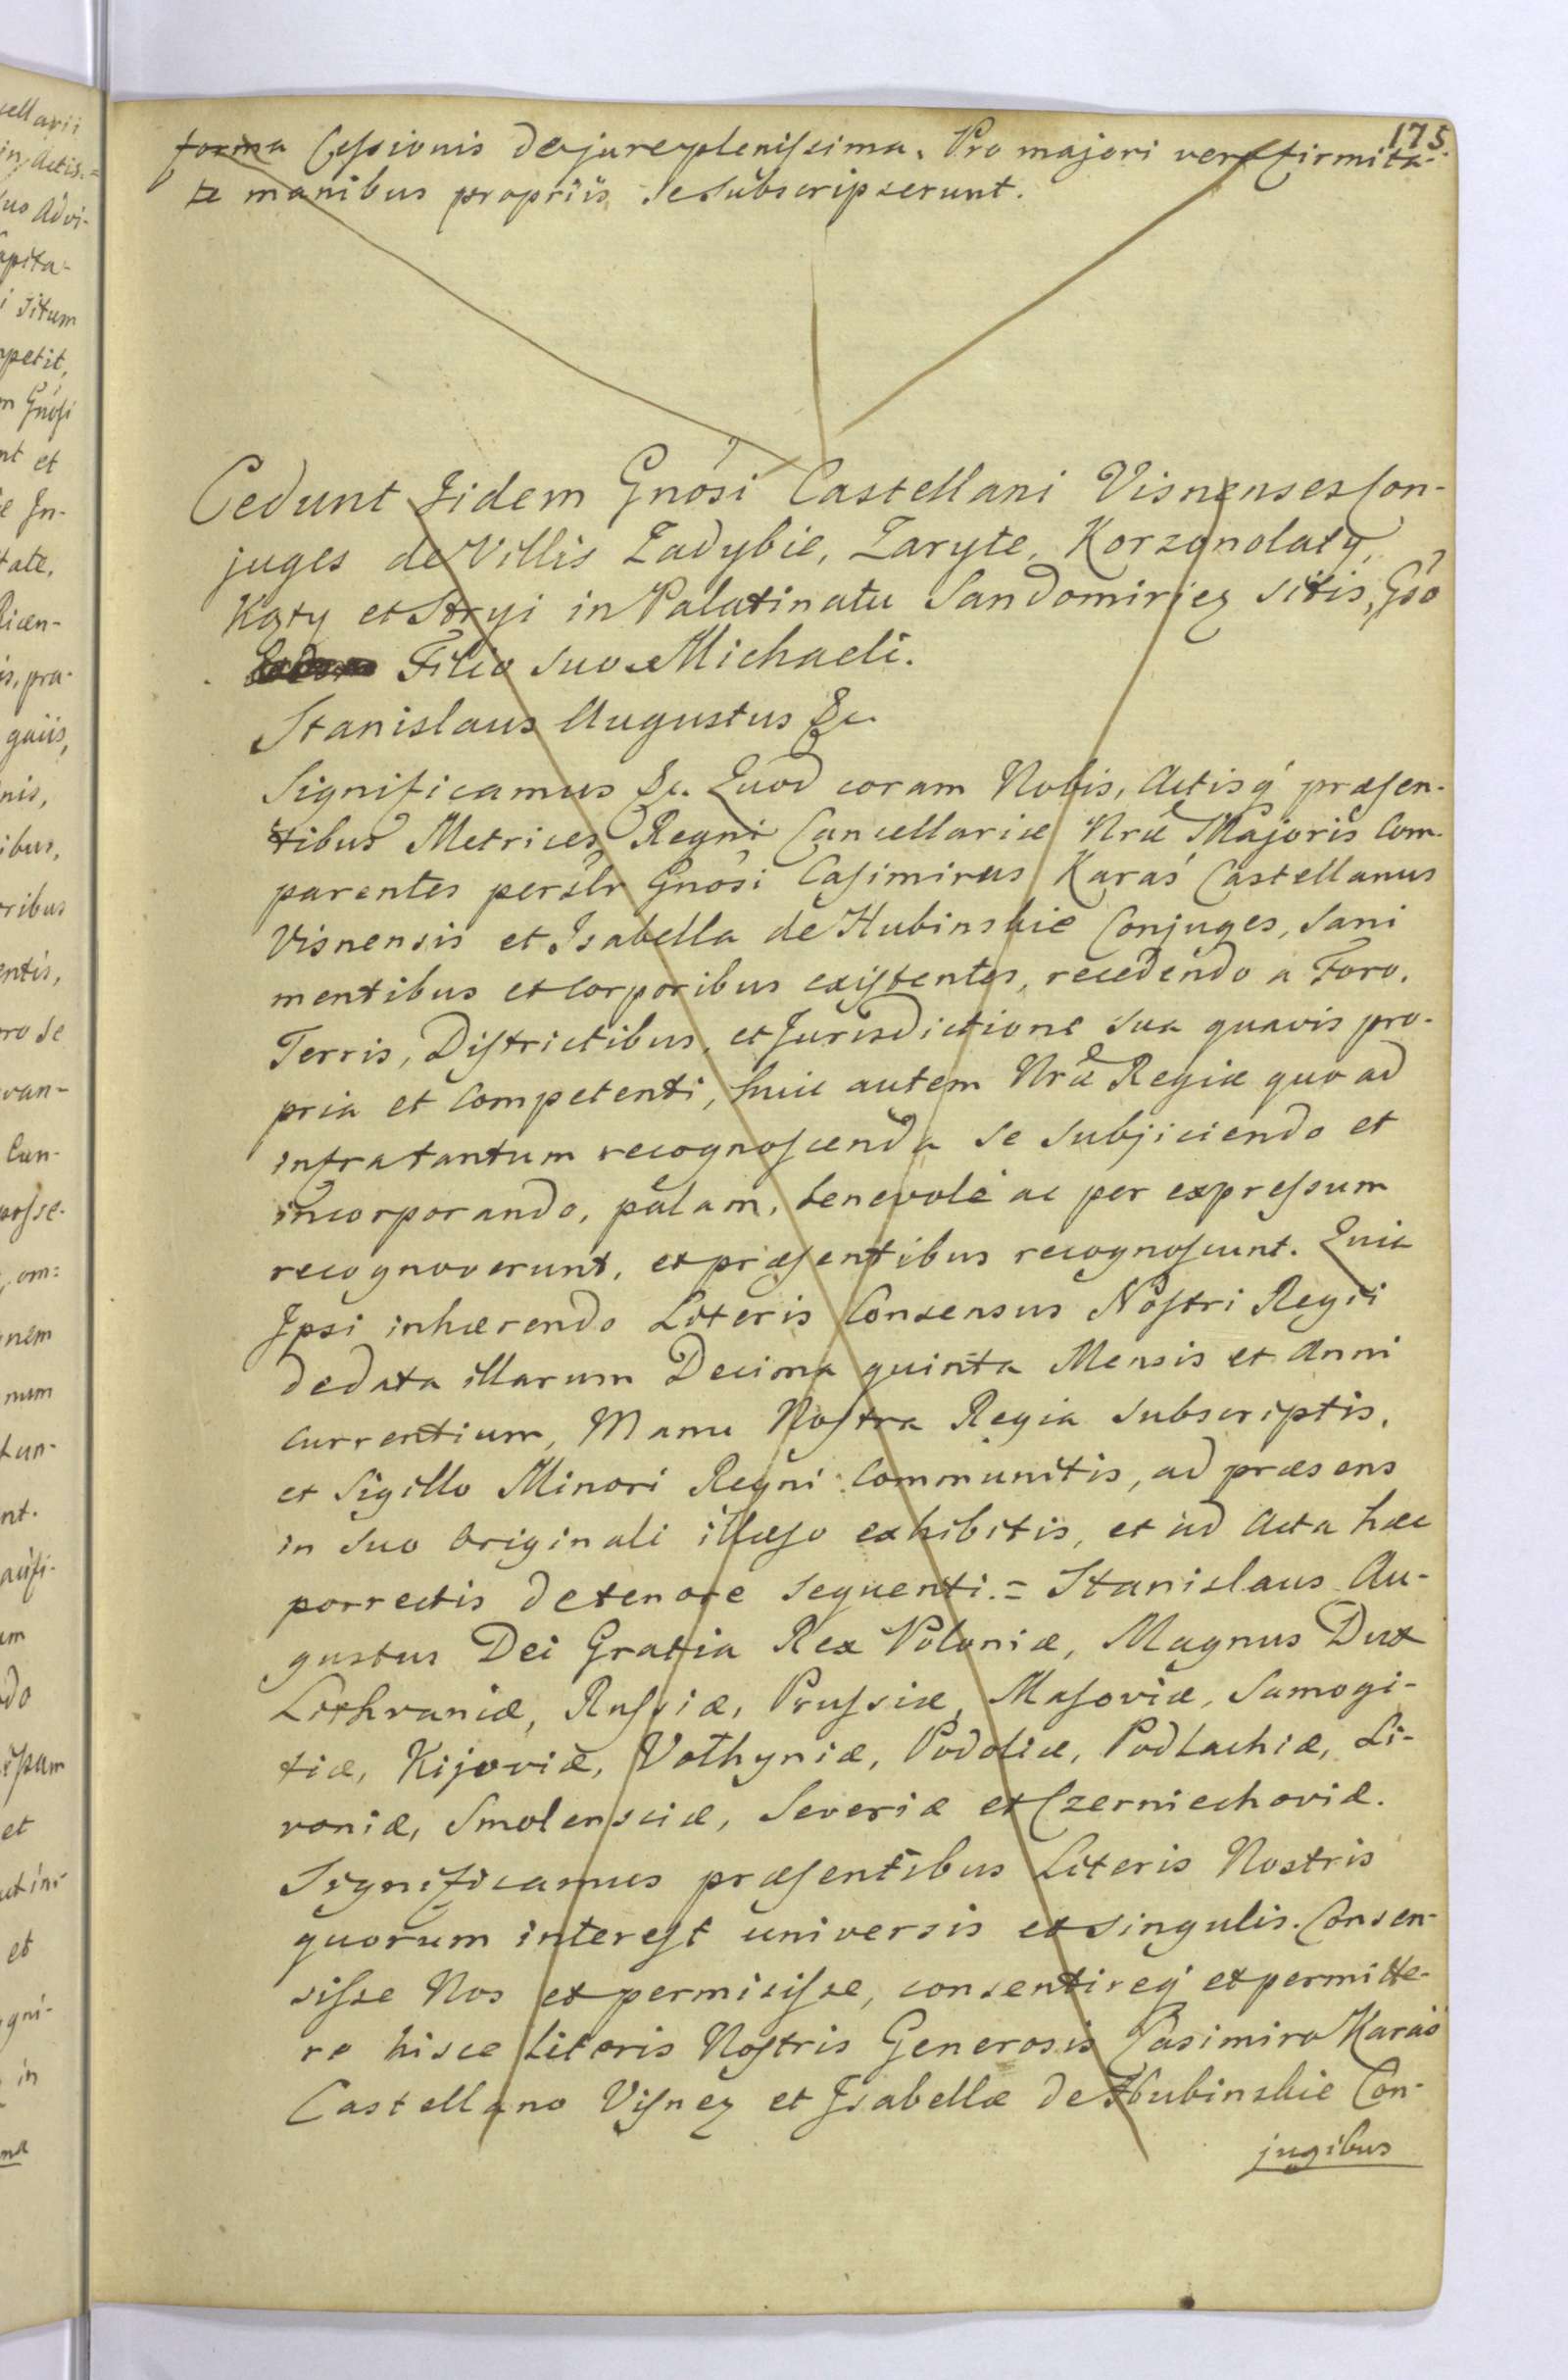 175
forma Cessionis de jure plenissima. Pro majori vero firmita-
te manibus propriis se subscripserunt.
Cedunt Iidem Gnosi Castellani Visnenses Con-
juges de Villis Zadybie, Zaryte, Korzonolaty,
Kąty et Stryi in Palatinatu Sandomiriez sitis, Gso
Filio suo Michaeli.
Stanislaus Augustus &c.
Significamus &c. Quod coram Nobis, Actisq́ præsen-
tibus Metrices Regni Cancellariæ Nræ Majoris Com-
parentes persłr Gnosi Casimirus Karaś Castellanus
Visnensis et Isabella de Hubinskie Conjuges, sani
mentibus et corporibus existentes, recedendo a Foro,
Terris, Districtibus, et Jurisdictione sua quavis pro-
pria et competenti, huic autem Nræ Regiæ quo ad
infra tantum recognoscenda se subjiciendo et
incorporando, palam, benevolè ac per expressum
recognoverunt, et præsentibus recognoscunt. Quia
Ipsi inhærendo Literis Consensus Nostri Regii
de data illarum Decima quinta Mensis et Anni
currentium, Manu Nostra Regia subscriptis,
et Sigillo Minori Regni communitis, ad præsens
in suo Originali illæso exhibitis, et ad Acta hæc
porrectis de tenore sequenti. = Stanislaus Au-
gustus Dei Gratia Rex Poloniæ, Magnus Dux
Lithvaniæ, Russiæ, Prussiæ, Masoviæ, Samogi-
tiæ, Kijoviæ, Volhyniæ, Podoliæ, Podlachiæ, Li-
voniæ, Smolensciæ, Severiæ et Czerniechoviæ.
Significamus præsentibus Literis Nostris
quorum interest universis et singulis. Consen-
sisse Nos et permisisse, consentireq́ et permitte-
re hisce Literis Nostris Generosis Casimiro Karaś
Castellano Visnez et Isabellæ de Hubinskie Con-
jugibus